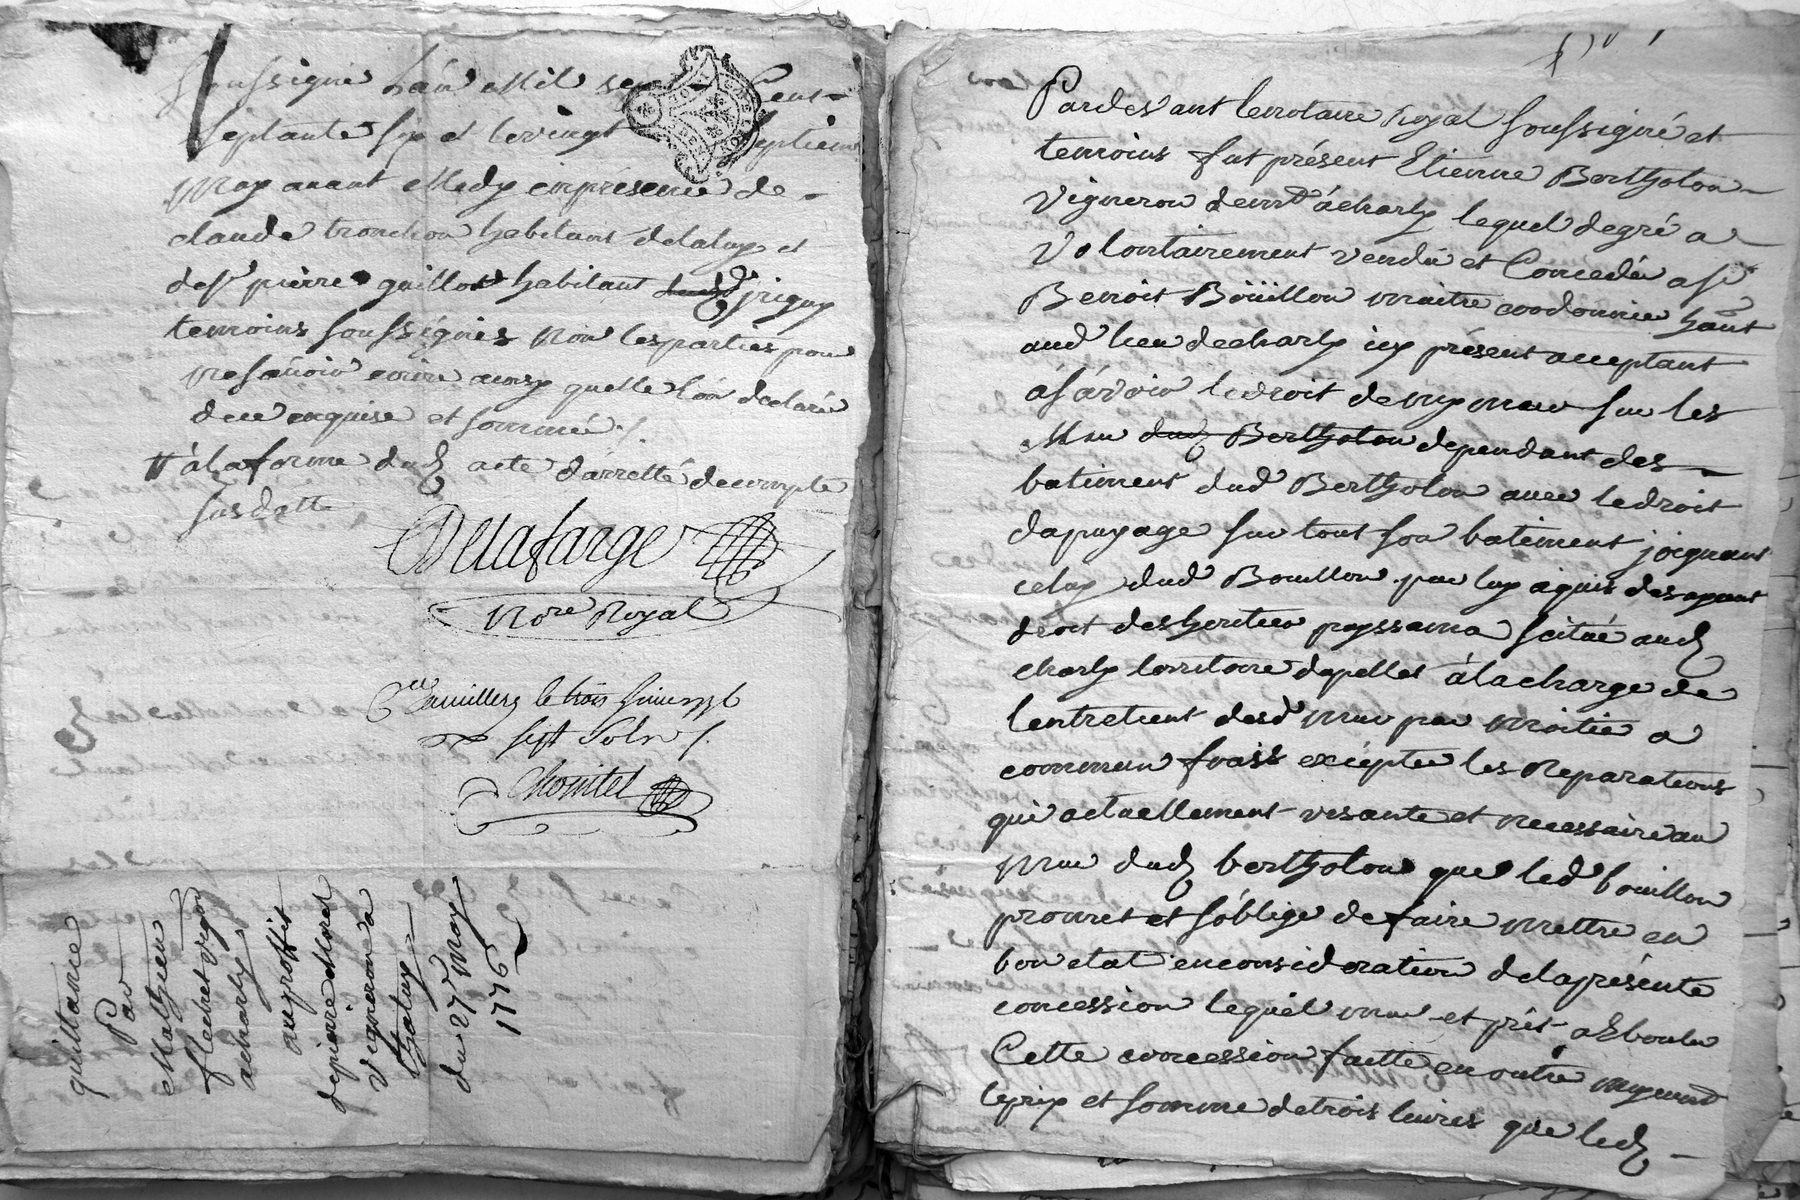 soussigné L'an Mil sept Cent
septante six et le vingt septieme
May avant Midy en présence de
claude tronchon habitant
de Sr pierre guillot habitant dud jrigny
temoins soussignés Non les parties pour
ne savoir ecrire ainsy quelle l'on declaré
de ce enquise et sommé /.
# à la forme dud acte d'arretté de compte
susdatte
Delafarge
Nore Royal
le trois
sept Sols /.
Chomitel
quittance
Par
Mathieu
flechet vigon
acharly
au proffit
de pierre Morel
Vigneron a
du 27e May
1776
Pardevant le notaire Royal soussigné et
temoins fut présent Etienne Bertholon
Vigneron demt à charly lequel de gré a
Volontairement vendu et Concedéa a sr
Benoit Boüillon maitre cordonnier hâant
aud lieu de charly icy présent acceptant
à sávoir le droit de mymur sur les
Mur dud Bertholon dependant des
batiment dud Bertholon avec le droit
dapuyage sur tout son batiment joignant
celuy dud Bouillon par luy aquis des ayant
droit des heritier payssama scitué aud
charly territoire dapellet à la charge de
lentretient desd mur par moitie a
commun frais excépter les Reparations
qui actuellement vesante et necessaire au
mur dud bertholon que led bouillon
promet et s'óblige de faire mettre en
bon etat en consideration de la présente
concession lequel mur et prèt a Eboulu
Cette concession faitte en outre moyennt
le prix et somme de trois livres que led